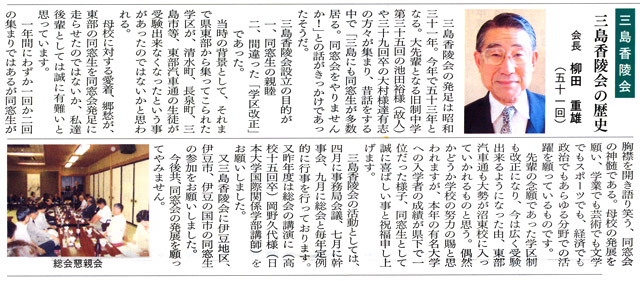 三島香陵会
三島香陵会の歴史
会長　柳田　重雄
（五十一回）
三島香陵会の発足は昭和
三十一年、今年で五十三年と
なる。大先輩となる旧制中学
第三十五回の池田裕様（故人）
や三十九回卒の大村様達有志
の方々が集まり、昔話をする
中で「三島にも同窓生が多数
居る。同窓会をやりません
か！との話がきっかけであっ
たそうだ。
三島香陵会設立の目的が
一、同窓生の親睦
二、間違った「学区改正」
であった。
当時の背景として、それま
で県東部から集ってこられた
学区が、清水町、長泉町、三
島市等、東部汽車通の生徒が
受験出来なくなったという事
があったのではないかと思わ
れる。
母校に対する愛着、郷愁が、
東部の同窓生を同窓会発足に
走らせたのではないか、私達
後輩としては誠に有難いと
思っています。
一年間にわずか一回か二回
の集まりではあるが同窓生が
胸襟を開き語り笑う、同窓会
の神髄である。母校の発展を
願い、学業でも芸術でも文学
でもスポーツでも、経済でも
政治でもあらゆる分野での活
躍を願っているものです。
先輩の念願であった学区制
も改正になり、今は広く受験
出来るようになった由、東部
汽車通も大勢が沼東校に入っ
ていかれるものと思う。偶然
かどうか学校の努力の賜と思
われますが、本年の有名大学
への入学者の成績が県下で一
位だった様子、同窓生として
誠に喜ばしい事と祝福申し上
げます。
三島香陵会の活動としては、
四月に事務局会議、七月に幹
事会、九月に総会と毎年定例
的に行事を行っております。
又昨年度は総会の講演に（高
校十五回卒）岡野久代様（日
本大学国際関係学部講師）を
お願いしました。
又三島香陵会に伊豆地区、
伊豆市、伊豆の国市の同窓生
の参加をお願いしました。
今後共、同窓会の発展を願っ
てやみません。
総会懇親会